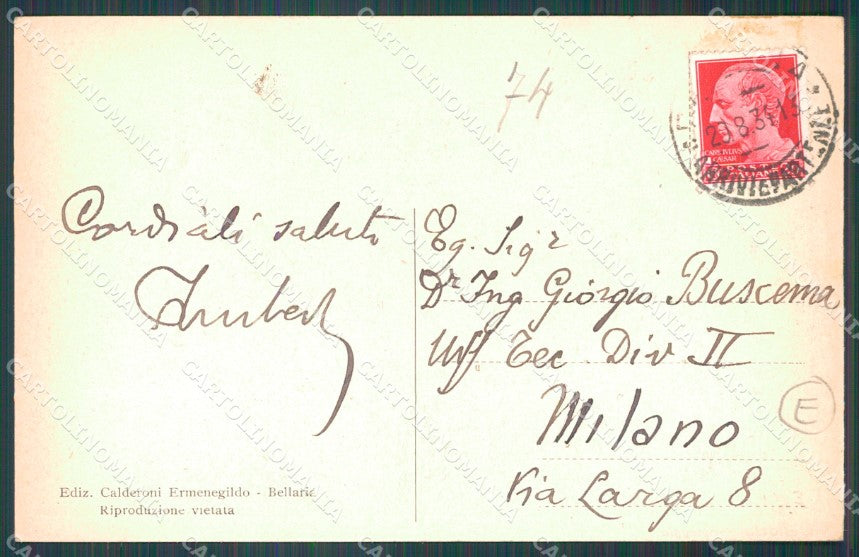 74
23.8.3
CAIVS IVLIVS
CAESAR
ARRIVI E PARTENZE
Cordiali saluti
Eg. Sigr
Dr Ing Giorgio Buscema
Uff Tec Div II
Milano
Via Larga 8
E
Ediz. Calderoni Ermenegildo - Bellaria
Riproduzione vietata
CARTOLINOMANIA